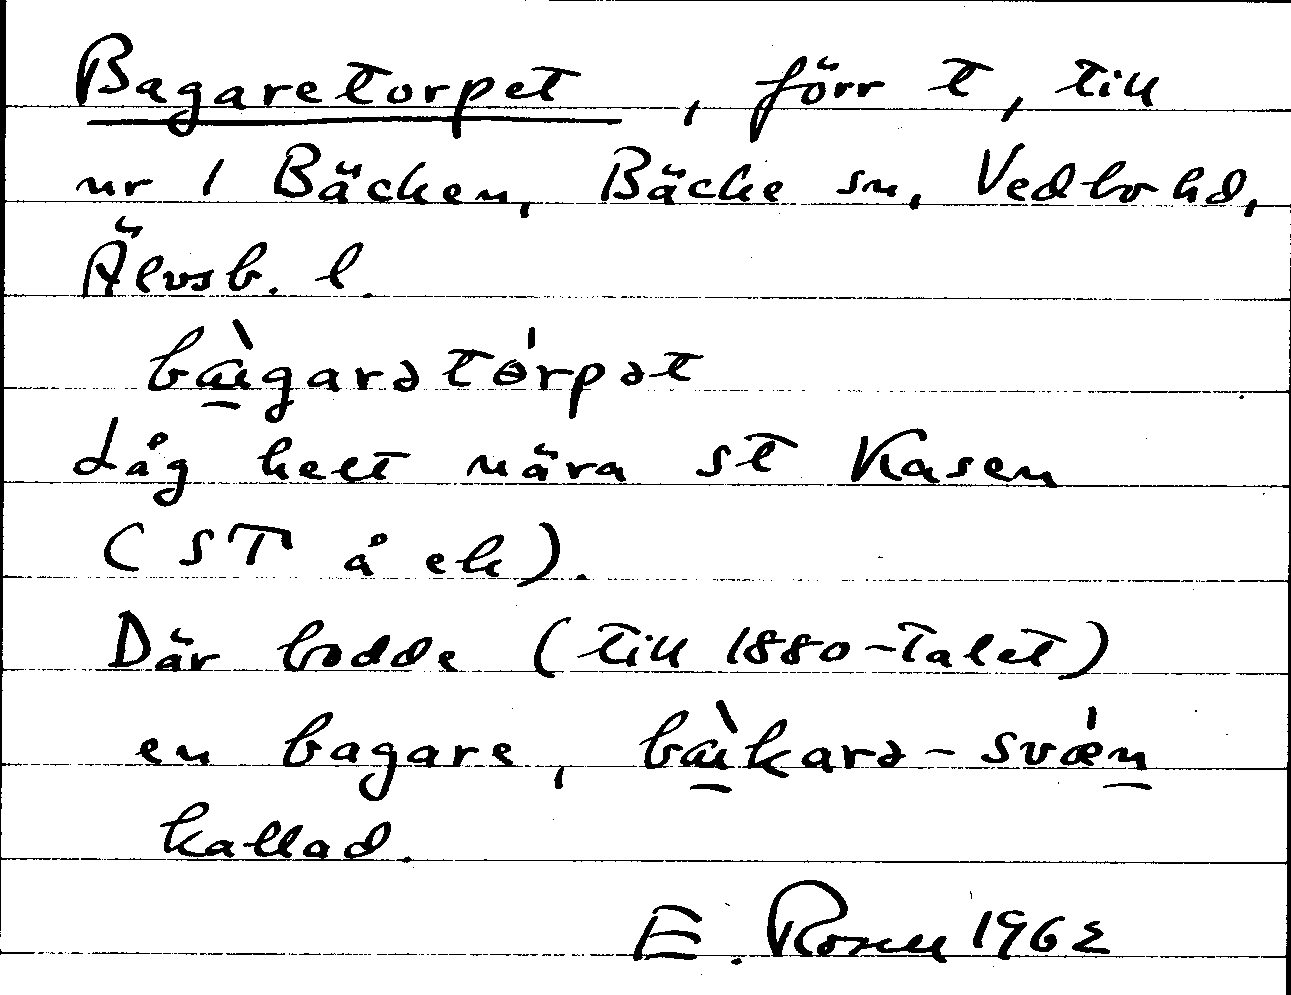 Bagaretorpet, förr t, till
nr 1 Bäcken, Bäcke sn, Vedbo hd,
Älvsb. l.
bàgarətórpət
Låg helt nära st Kasen
(ST å ek).
Där bodde (till 1880-talet)
en bagare, bàkarə-svǽn
kallad.
E. 1962